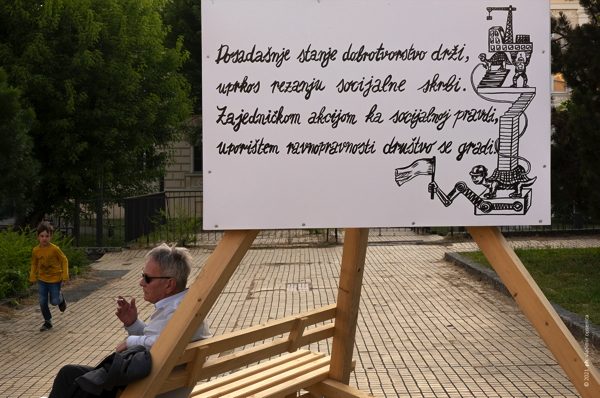 Dosadašnje stanje dobrotvorstvo drži,
uprkos rezanju socijalne skrbi.
Zajedničkom akcijom ka socijalnoj pravdi,
uporištem ravnopravnosti društvo se gradi!